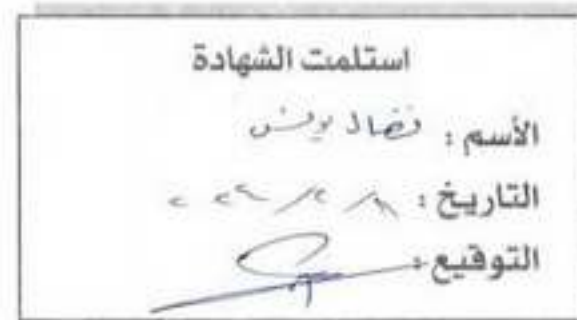 استلمت الشهادة
الأسم : نضال يونس
التاريخ :
التوقيع :